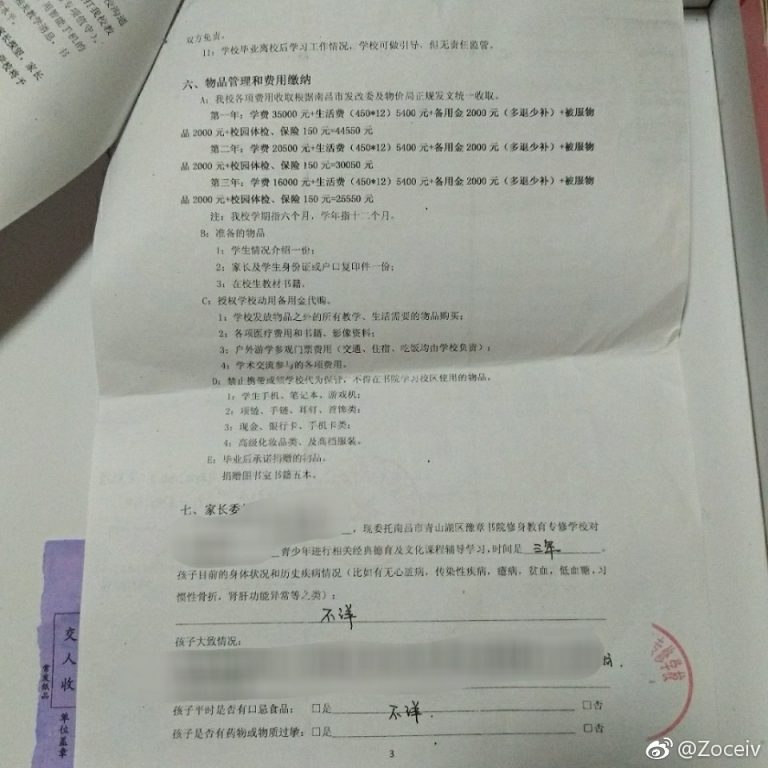 双方免责。
11：学校毕业离校后学习工作情况，学校可做引导，但无责任监管。
六、物品管理和费用缴纳
A：我校各项费用收取根据南昌市发改委及物价局正规发文统一收取。
第一年：学费 35000 元+生活费（450*12）5400 元+备用金 2000 元（多退少补）+被服物
品 2000 元+校园体检、保险 150 元=44550 元
第二年：学费 20500 元+生活费（450*12）5400 元+备用金 2000 元（多退少补）+被服物
品 2000 元+校园体检、保险 150 元=30050 元
第三年：学费 16000 元+生活费（450*12）5400 元+备用金 2000 元（多退少补）+被服物
品 2000 元+校园体检、保险 150 元=25550 元
注：我校学期指六个月，学年指十二个月。
B：准备的物品
1：学生情况介绍一份；
2：家长及学生身份证或户口复印件一份；
3：在校生教材书籍。
C：授权学校动用备用金代购。
1：学校发放物品之外的所有教学、生活需要的物品购买；
2：各项医疗费用和书籍、影像资料；
3：户外游学参观门票费用（交通、住宿、吃饭均由学校负责）；
4：学术交流参与的各项费用。
D：禁止携带或须学校代为保管，不得在书院学习校区使用的物品。
1：学生手机、笔记本、游戏机；
2：项链、手链、耳钉、首饰类；
3：现金、银行卡、手机卡类；
4：高级化妆品类、及高档服装。
E：毕业后承诺捐赠的物品。
捐赠图书室书籍五本。
七、家长委
，现委托南昌市青山湖区豫章书院修身教育专修学校对
青少年进行相关经典德育及文化课程辅导学习，时间是 三年 。
孩子目前的身体状况和历史疾病情况（比如有无心脏病，传染性疾病，癔病，贫血，低血糖，习
惯性骨折，肾肝功能异常等之类）：
不详
孩子大致情况：
孩子平时是否有口忌食品：□是 不详. □否
孩子是否有药物或物质过敏：□是 □否
3
交人收
常发纸品
单位盖章
@Zoceiv